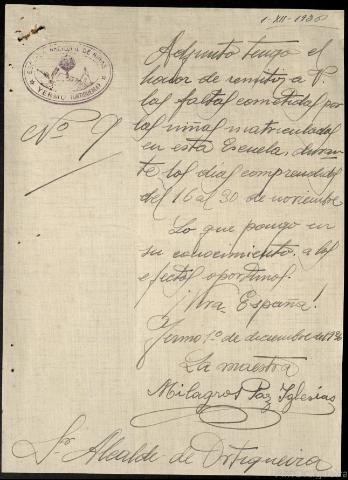 1-XII-1936
ESCUELA NACIONAL DE NIÑAS
YERMO (ORTIGUEIRA)
Nº 9
Adjunto tengo el
honor de remitir a V.
las faltas cometidas por
las niñas matriculadas
en esta Escuela, duran-
te los días comprendidos
del 16 al 30 de noviembre
Lo que pongo en
su conocimiento, a los
efectos oportunos.
¡Viva España!
Yermo 1º de diciembre del 1936
La maestra
Milagros Paz Iglesias
Sr. Alcalde de Ortigueira